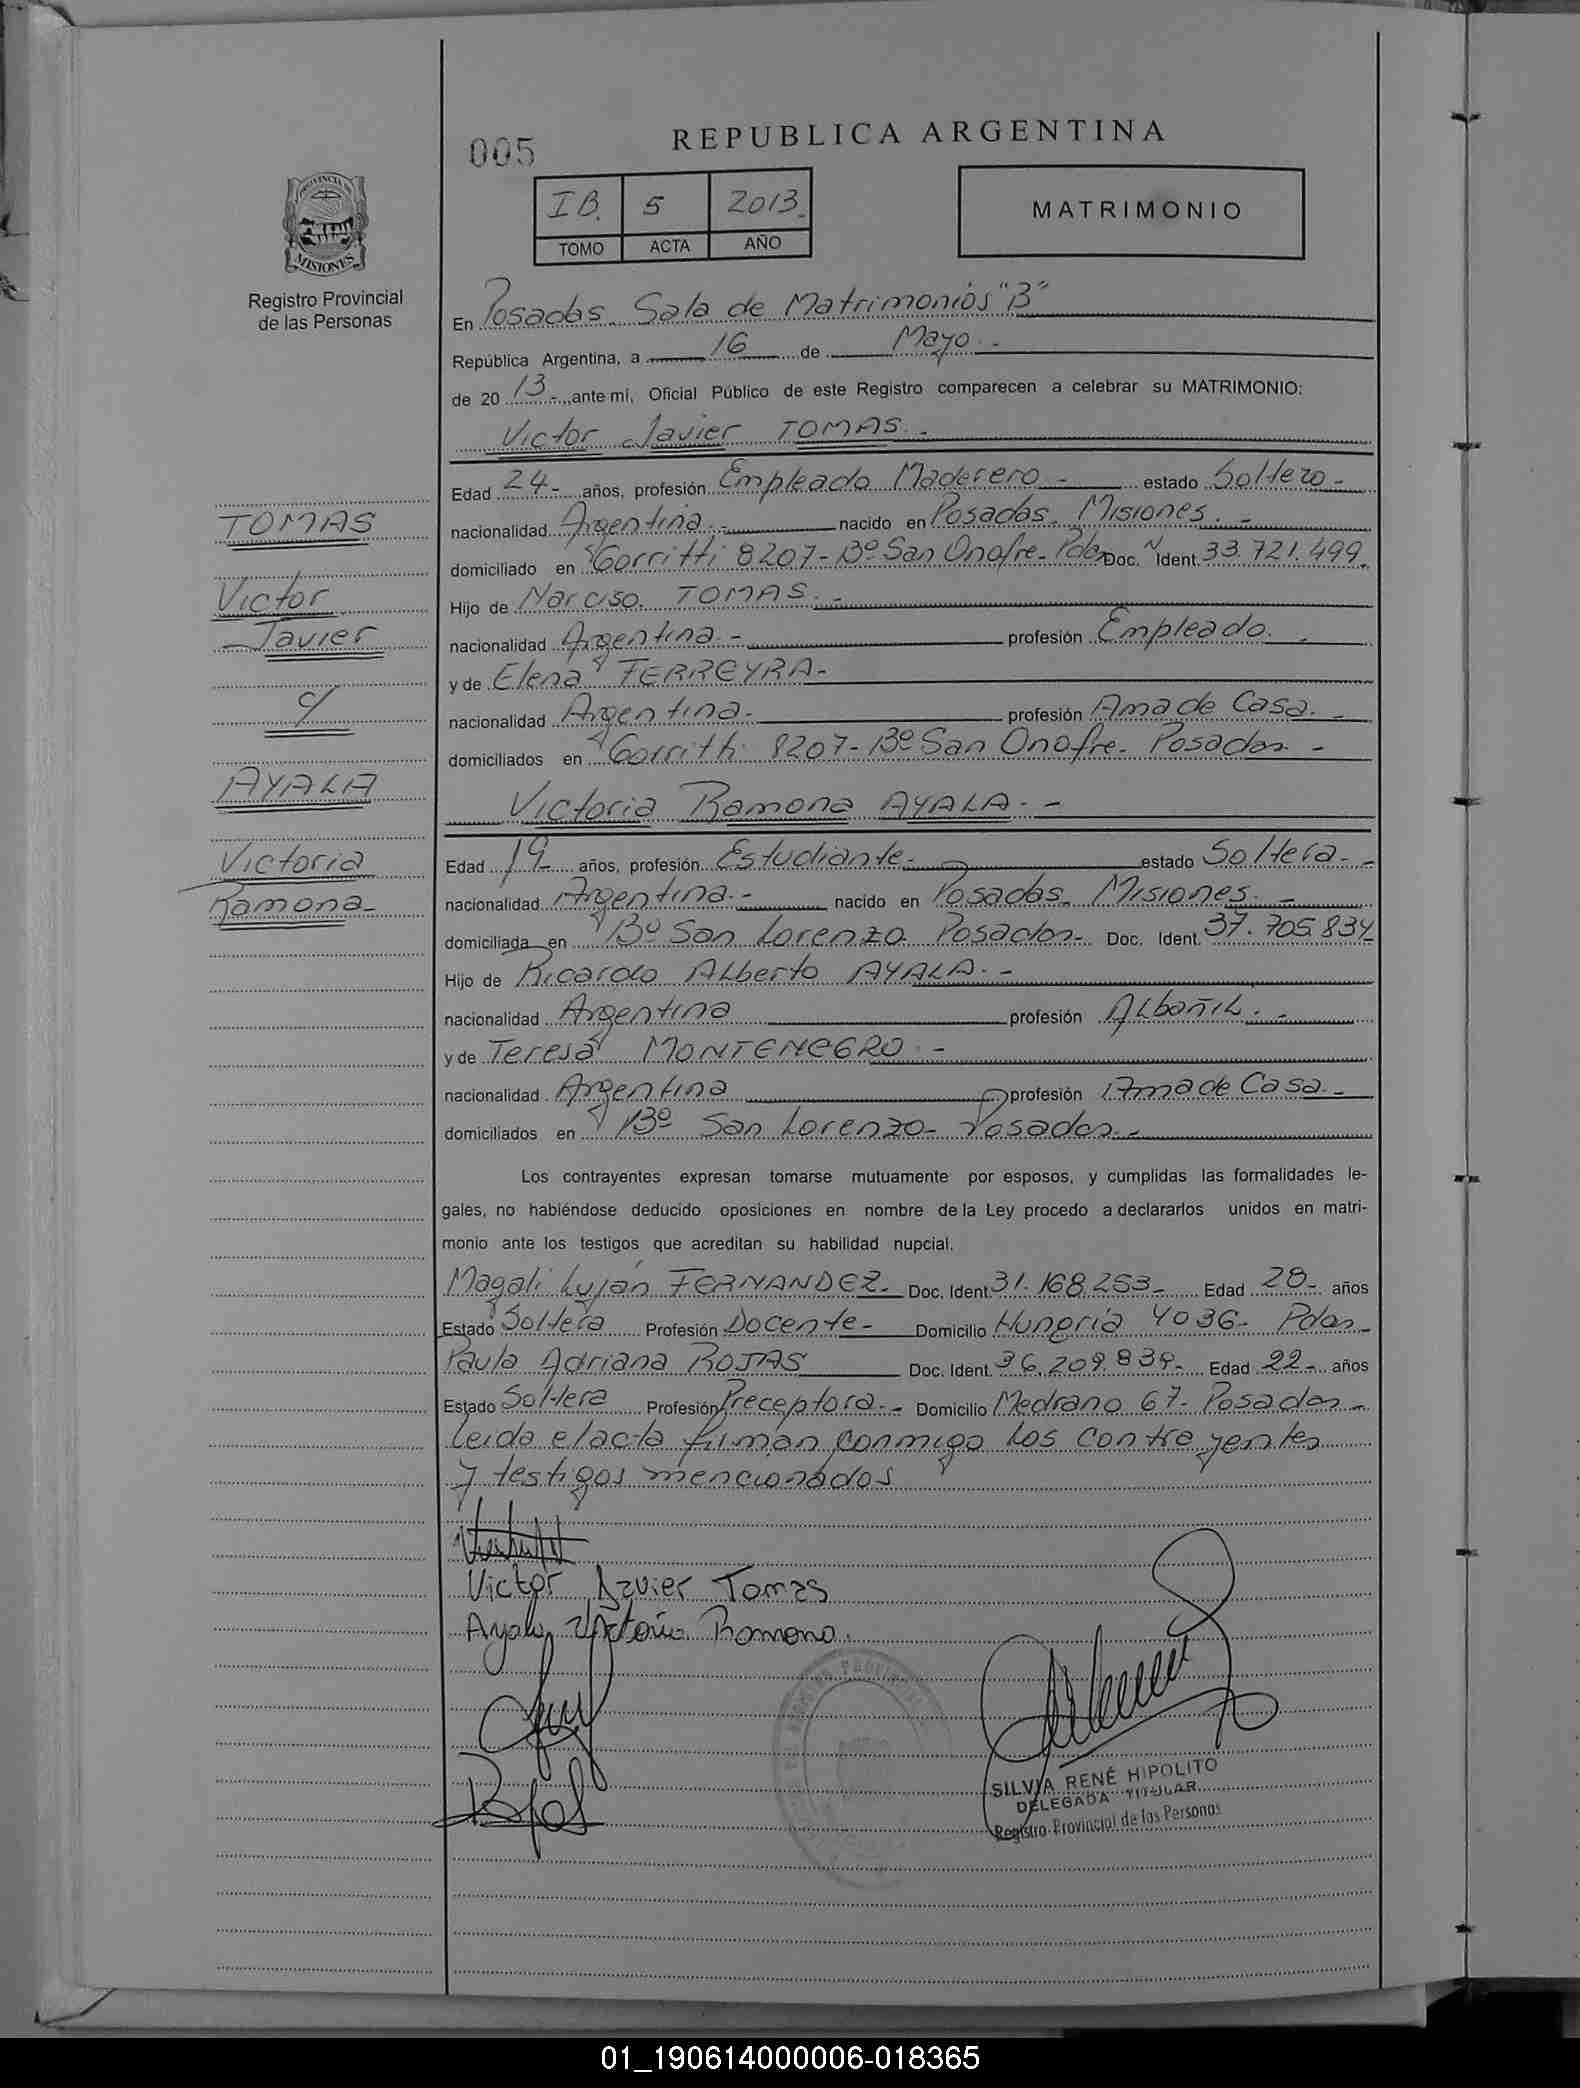 005
REPUBLICA ARGENTINA
IB. 5 2013.
TOMO ACTA AÑO
MATRIMONIO
PROVINCIA DE
MISIONES
Registro Provincial
de las Personas
En Posadas. Sala de Matrimonios "B"
República Argentina, a 16 de Mayo.-
de 20 13.- ante mí, Oficial Público de este Registro comparecen a celebrar su MATRIMONIO:
Victor Javier TOMAS.-
Edad 24- años, profesión Empleado Maderero- estado Soltero-
nacionalidad Argentina.- nacido en Posadas. Misiones.-
domiciliado en Gorritti 8207- Bº San Onofre- Pdas Doc. Ident. 33.721.499.
Hijo de Narciso. TOMAS.-
nacionalidad Argentina.- profesión Empleado.-
y de Elena FERREYRA-
nacionalidad Argentina.- profesión Ama de Casa.-
domiciliados en Gorritti 8207- Bº San Onofre- Posadas-
Victoria Ramona AYALA.-
Edad 19- años, profesión Estudiante- estado Soltera.-
nacionalidad Argentina.- nacido en Posadas. Misiones.-
domiciliada en Bº San Lorenzo. Posadas- Doc. Ident. 37.705.834
Hijo de Ricardo Alberto AYALA.-
nacionalidad Argentina profesión Albañil.-
y de Teresa MONTENEGRO.-
nacionalidad Argentina profesión Ama de Casa.-
domiciliados en Bº San Lorenzo- Posadas.-
TOMAS
Victor
Javier
c/
AYALA
Victoria
Ramona-
Los contrayentes expresan tomarse mutuamente por esposos, y cumplidas las formalidades le-
gales, no habiéndose deducido oposiciones en nombre de la Ley procedo a declararlos unidos en matri-
monio ante los testigos que acreditan su habilidad nupcial.
Magali Luján FERNANDEZ- Doc. Ident. 31.168.253- Edad 28- años
Estado Soltera Profesión Docente- Domicilio Hungria 4036- Pdas-
Paula Adriana ROJAS Doc. Ident. 36.209.839- Edad 22- años
Estado Soltera Profesión Preceptora.- Domicilio Medrano 67- Posadas-
Leida el acta firman conmigo los contrayentes
y testigos mencionados
Victor Javier Tomas
Ayala Victoria Ramona.
SILVIA RENÉ HIPOLITO
DELEGADA TITULAR
Registro Provincial de las Personas
01_190614000006-018365